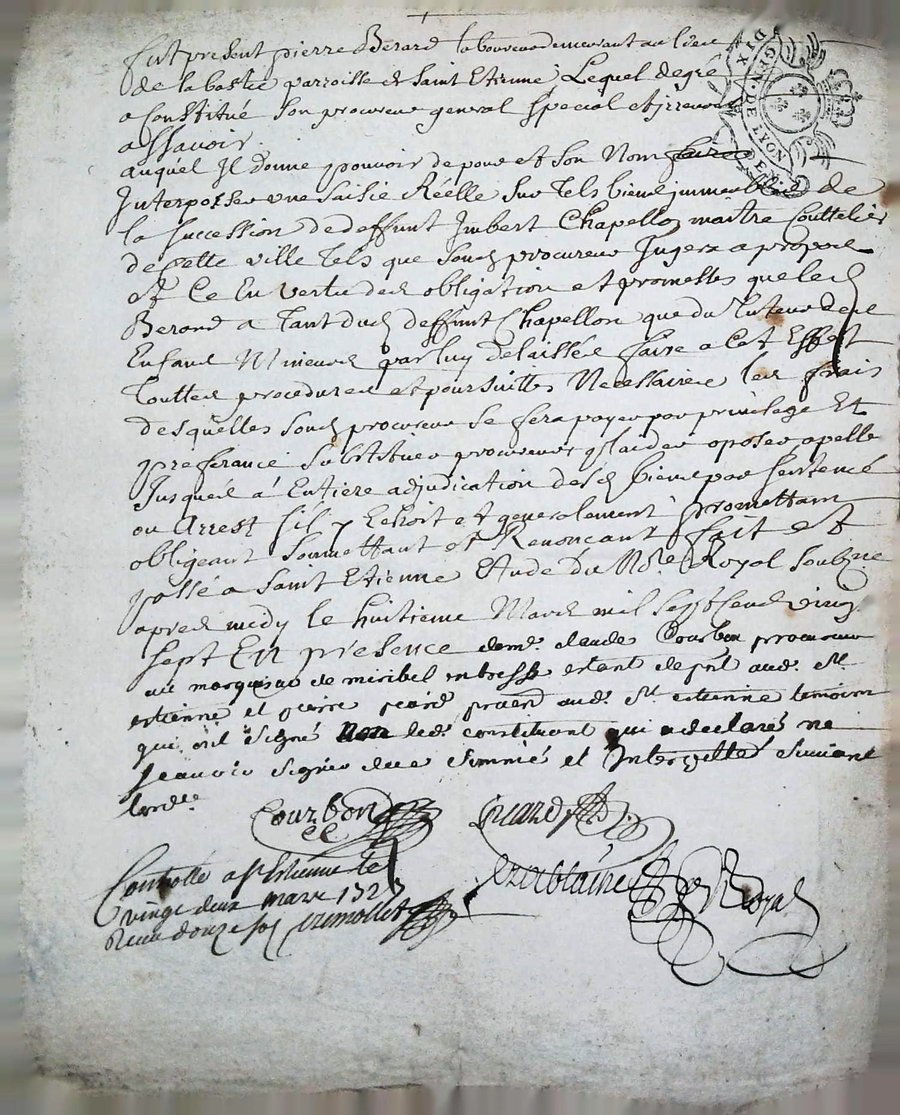 Fut présent pierre Berard laboureur demeurant au lieu
de la bastie parroisse de Saint Etienne Lequel de gré
a Constitué Son procureur general special et irrevoc
assavoir
auquel Il donne pouvoir de pour et Son Nom faire
Interposer une Saisie Réelle Sur Tels biens immeubles de
la Succession de deffunt Imbert Chapellon maitre Couttelier
de Cette ville Tels que Sond procureur Jugera a propos
et Ce En vertu des obligation et promesses que led
Berard a Tant dud deffunt Chapellon que du Tuteur de ses
Enfans Mineurs par luy delaissés faire a Cet Effect
Touttes procedures et poursuittes Necessaires les frais
desquelles Sond procureur Se fera payer par privilege Et
preferance Substituer procureurs plaider oposer apeller
Jusques a Entiere adjudication desd biens par Sentence
ou Arrest S'il y Echoit et generalement promettant
obligeant Soumettant et Renonçant fait et
passé a Saint Etienne Etude du No.re Royal Soubz.né
apres midy le huitieme Mars mil Sept Cens vingt
Sept En presence de m.e claude Courbon procureur
au marquisat de miribel estant de pnt aud. St.
estienne et pierre picard pratn aud. St. estienne temoins
qui ont signé non led. constituant qui a declaré ne
sçavoir signer de ce sommé et Interpellé suivant
lord.ce
Courbon Picard
Controllé a St Estienne le
vingt deux mars 1727
Receu douze sols
No.re Royal
DIX
GEN. DE LYON